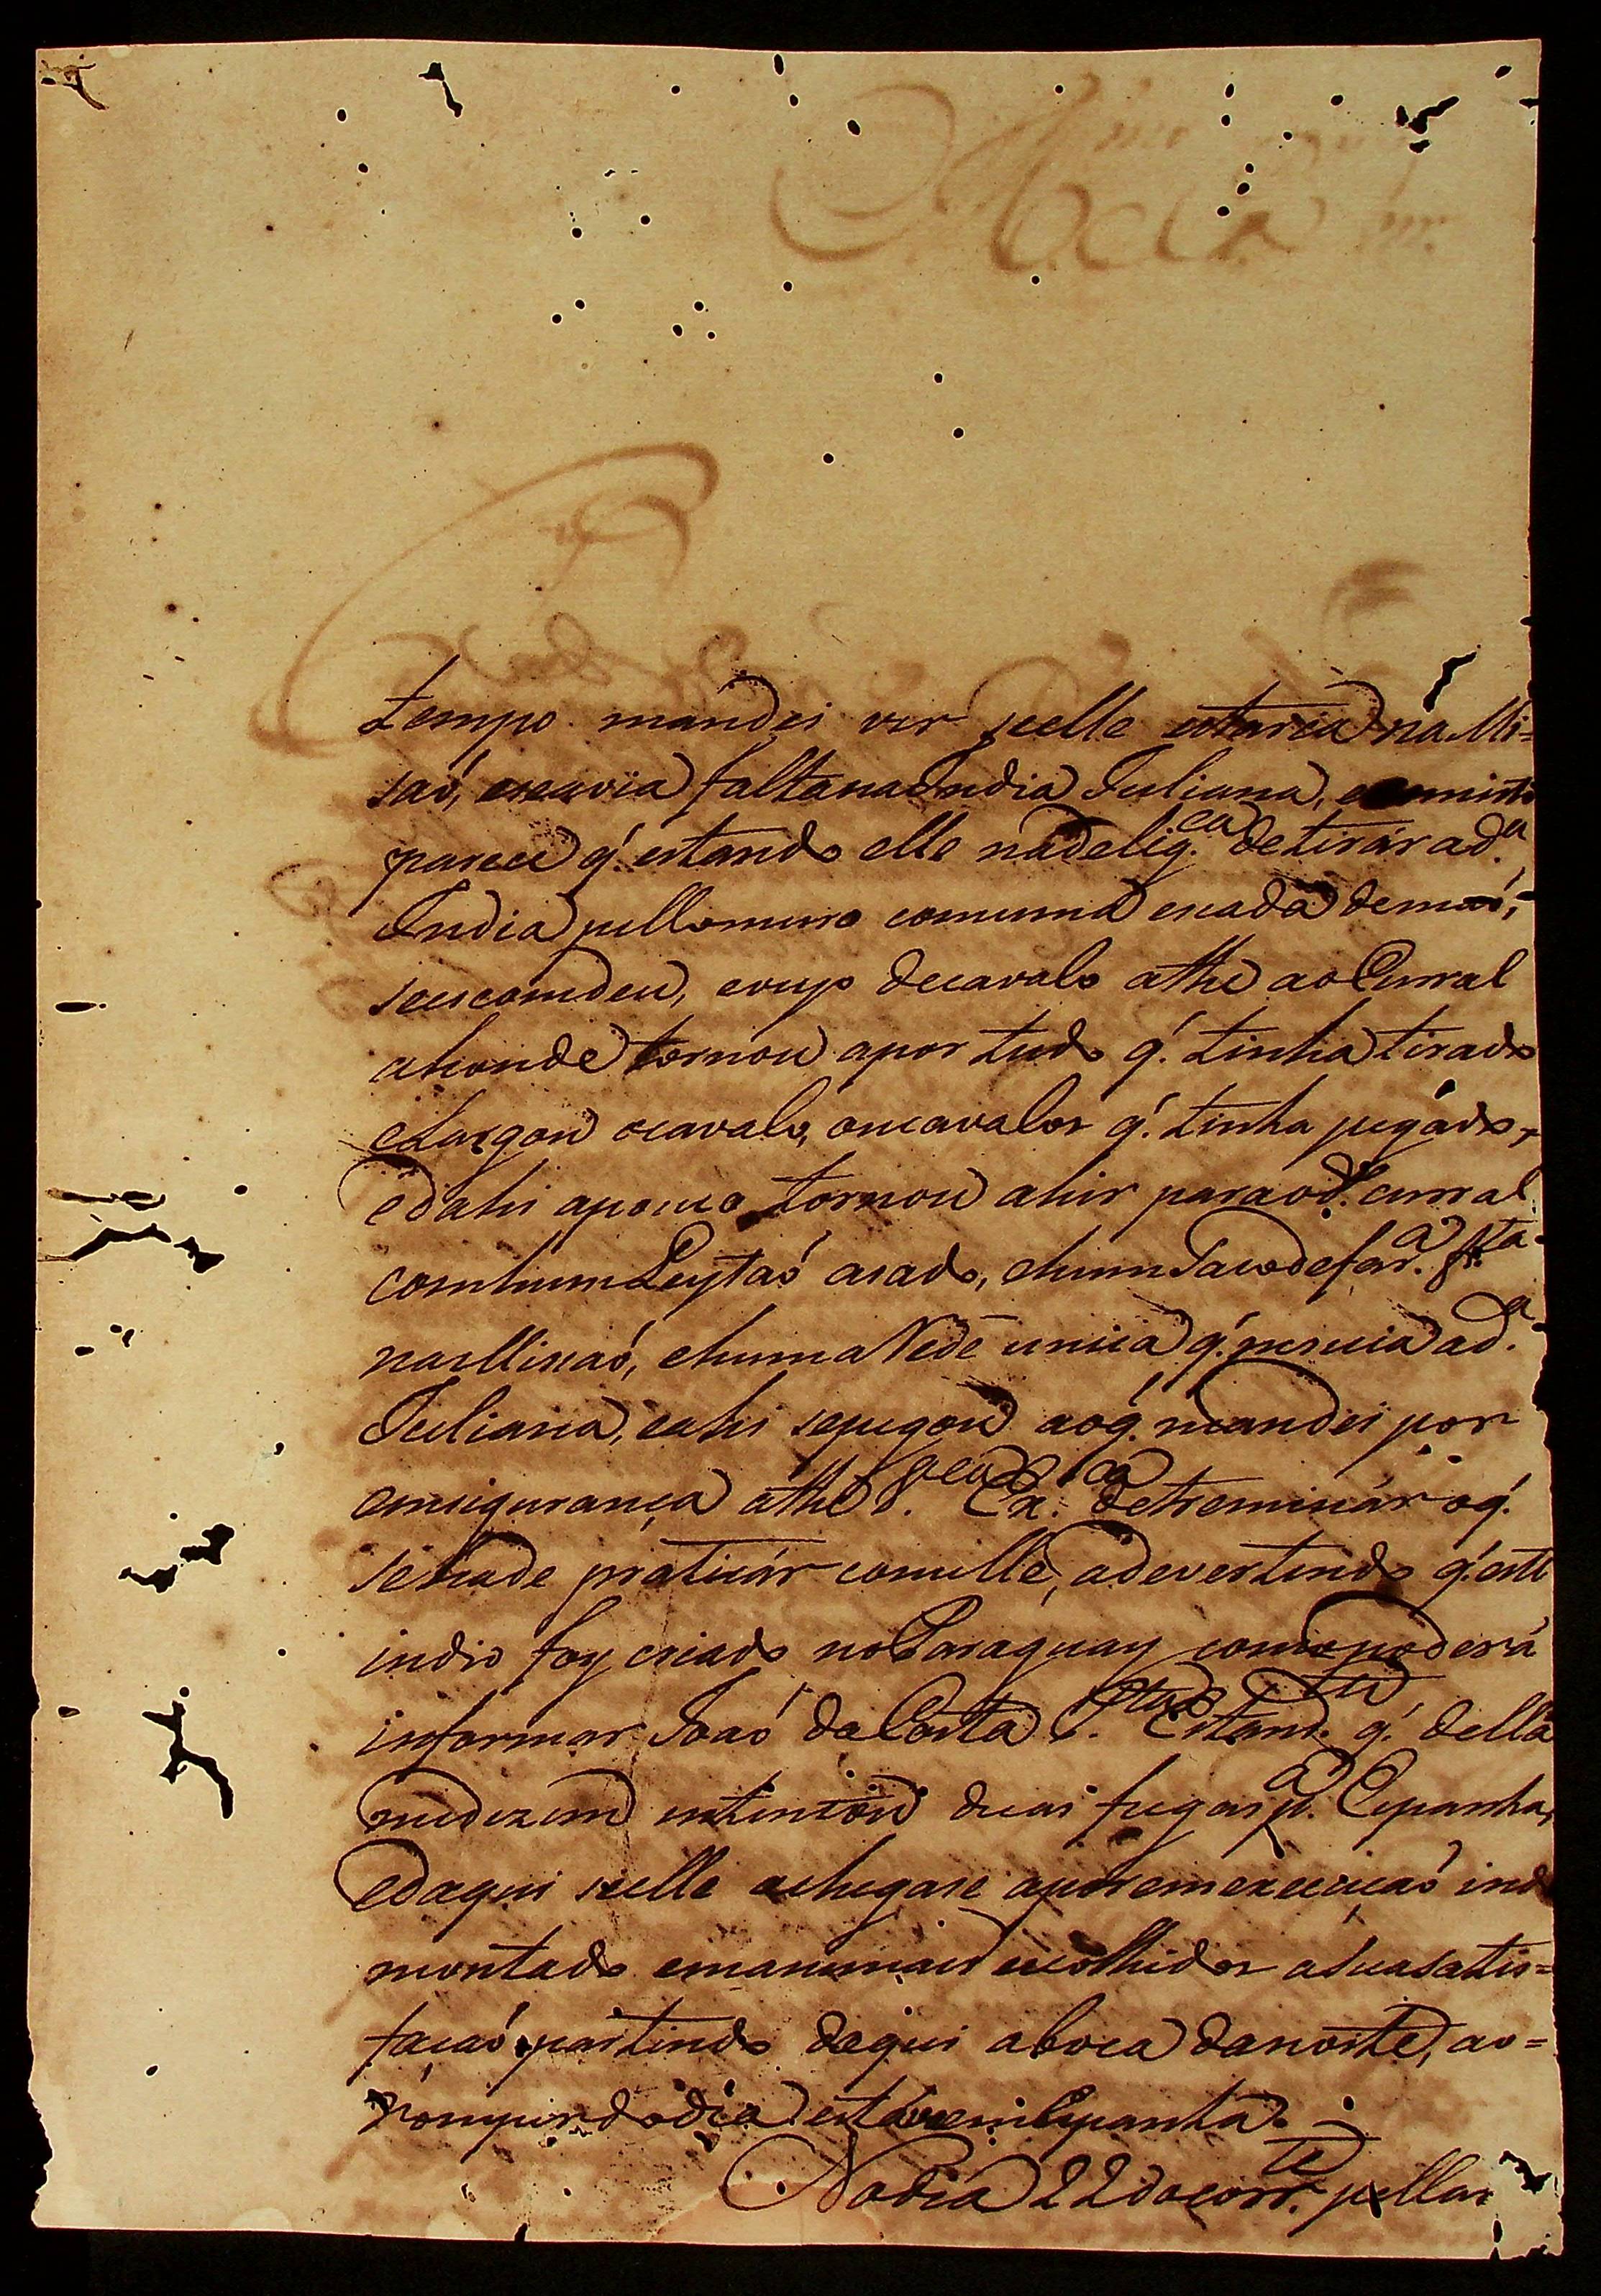 tempo mandei ver se elle estaria na Mi=
saó, e se avia falta na India Juliana, e
parece q̃. estando elle na delig.ca de tirár a d.a
India pello muro com uma escada de maó,
se escomdeu, e vejo de cavalo athe ao Curral
ahonde tornou a por tudo q̃. tinha tirado
e Largou o cavalo, ou cavalos q̃. tinha pegádo,
e dahi a pouco tornou a hir para o d.o curral
com hum Leytaó asado, e hum Saco de far.a f.ta
na Missaó, e huma Rede unica q̃. pesuia a d.a
Juliana, e ahi se pegou ao q̃. mandei por
em sigurança athe V. Ex.ca detreminár o q̃.
se hade praticár com elle, adevertindo q̃. este
indio foy criado no Paraguay como poderá
informar Joaó da Costa P. Estand.te q̃. della
me dizem intentou duas fugas p.a Espanha,
e daqui se elle achegase a por em execuçaó indo
montado em animais escolhidos a sua satis=
façaó partindo daqui a boca da noite, ao=
romper do dia está em Espanha.
No dia 22 do corr.te pellas